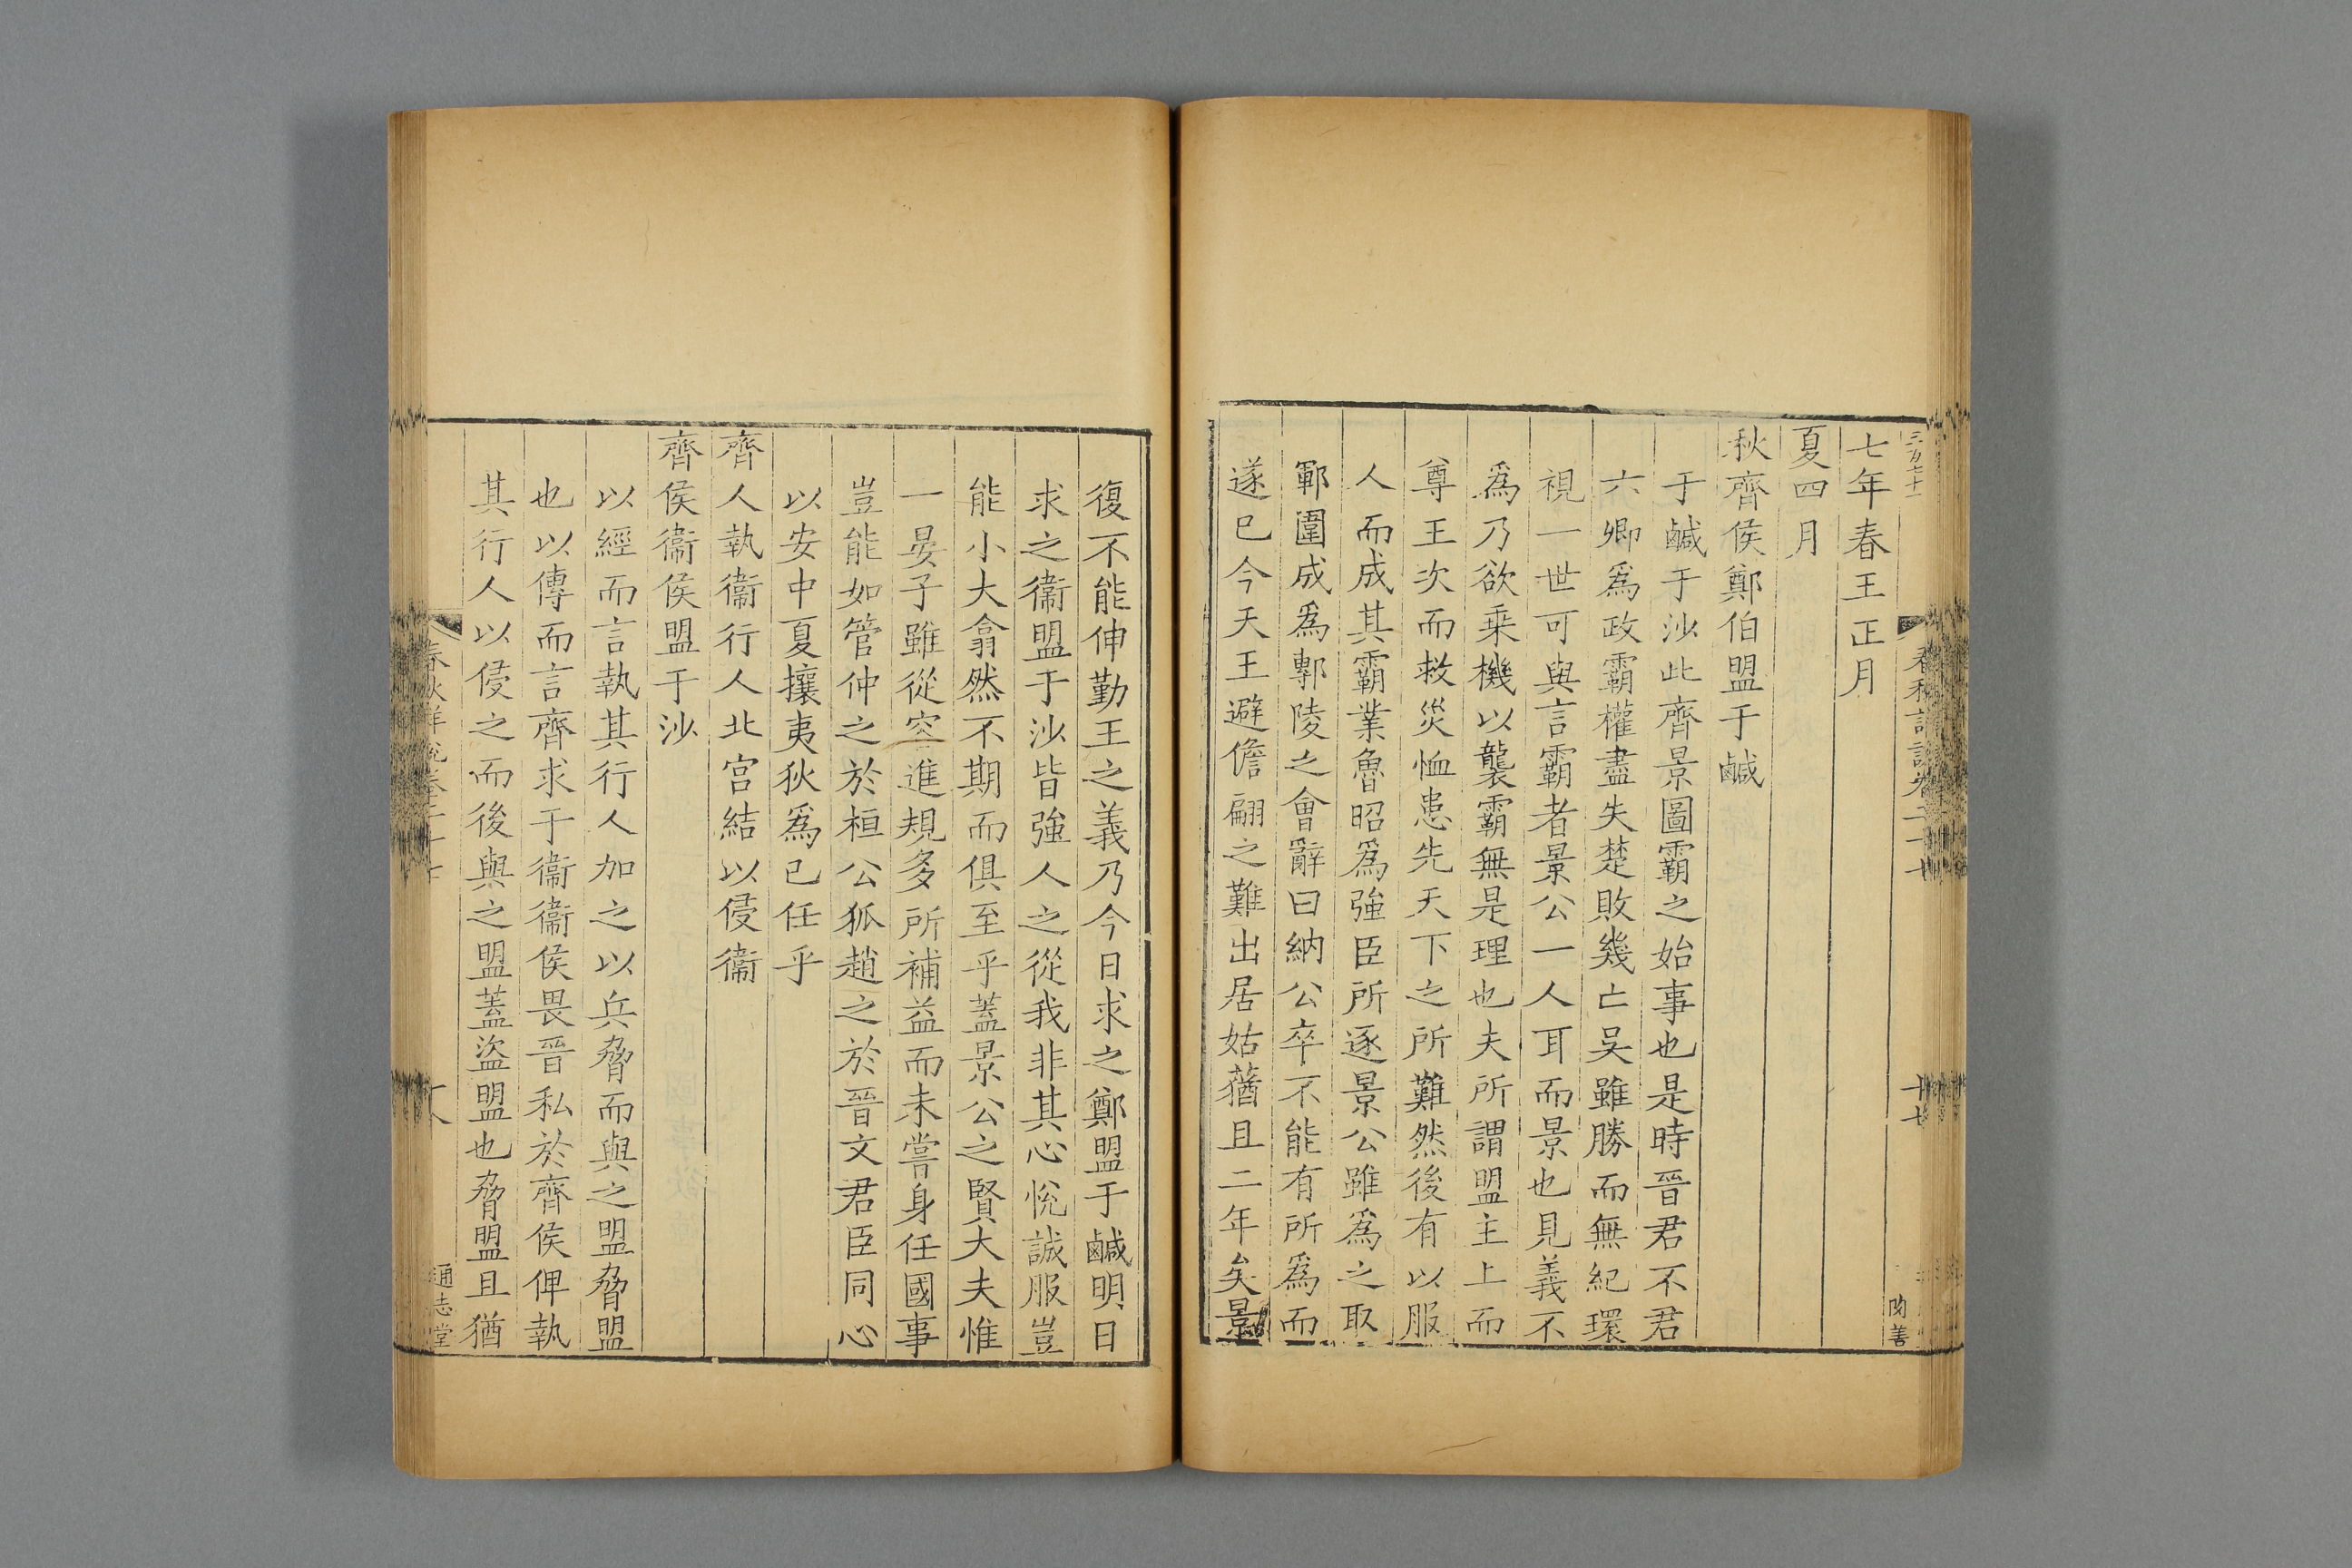 七年春王正月
夏四月
秋齊侯鄭伯盟于鹹
于鹹于沙此齊景圖霸之始事也是時晉君不君
六卿爲政霸權盡失楚敗幾亡吳雖勝而無紀環
視一世可與言霸者景公一人耳而景也見義不
爲乃欲乗機以襲霸無是理也夫所謂盟主上而
尊王次而救災恤患先天下之所難然後有以服
人而成其霸業魯昭爲強臣所逐景公雖爲之取
鄆圍成爲鄟陵之會辭曰納公卒不能有所爲而
遂已今天王避儋翩之難出居姑蕕且二年矣景
復不能伸勤王之義乃今日求之鄭盟于鹹明日
求之衞盟于沙皆強人之從我非其心悅誠服豈
能小大翕然不期而俱至乎蓋景公之賢大夫惟
一晏子雖從容進規多所補益而未嘗身任國事
豈能如管仲之於桓公狐趙之於晉文君臣同心
以安中夏攘夷狄爲已任乎
齊人執衞行人北宮結以侵衞
齊侯衞侯盟于沙
以經而言執其行人加之以兵脅而與之盟脅盟
也以傳而言齊求于衞衞侯畏晉私於齊侯俾執
其行人以侵之而後與之盟蓋盜盟也脅盟且猶
通志堂